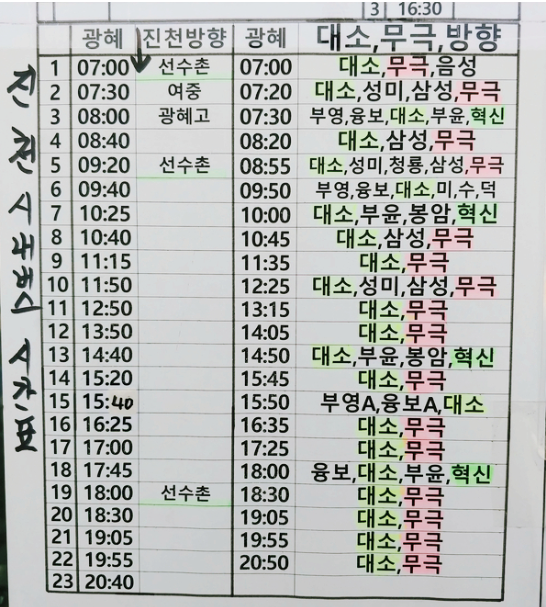 3 16:30
광혜 진천방향 광혜 대소,무극,방향
1 07:00 선수촌 07:00 대소,무극,음성
2 07:30 여중 07:20 대소,성미,삼성,무극
3 08:00 광혜고 07:30 부영,융보,대소,부윤,혁신
4 08:40 08:20 대소,삼성,무극
5 09:20 선수촌 08:55 대소,성미,청룡,삼성,무극
6 09:40 09:50 부영,융보,대소,미,수,덕
7 10:25 10:00 대소,부윤,봉암,혁신
8 10:40 10:45 대소,삼성,무극
9 11:15 11:35 대소,무극
10 11:50 12:25 대소,성미,삼성,무극
11 12:50 13:15 대소,무극
12 13:50 14:05 대소,무극
13 14:40 14:50 대소,부윤,봉암,혁신
14 15:20 15:45 대소,무극
15 15:40 15:50 부영A,융보A,대소
16 16:25 16:35 대소,무극
17 17:00 17:25 대소,무극
18 17:45 18:00 융보,대소,부윤,혁신
19 18:00 선수촌 18:30 대소,무극
20 18:30 19:05 대소,무극
21 19:05 19:55 대소,무극
22 19:55 20:50 대소,무극
23 20:40
진천 시내버스 시간표